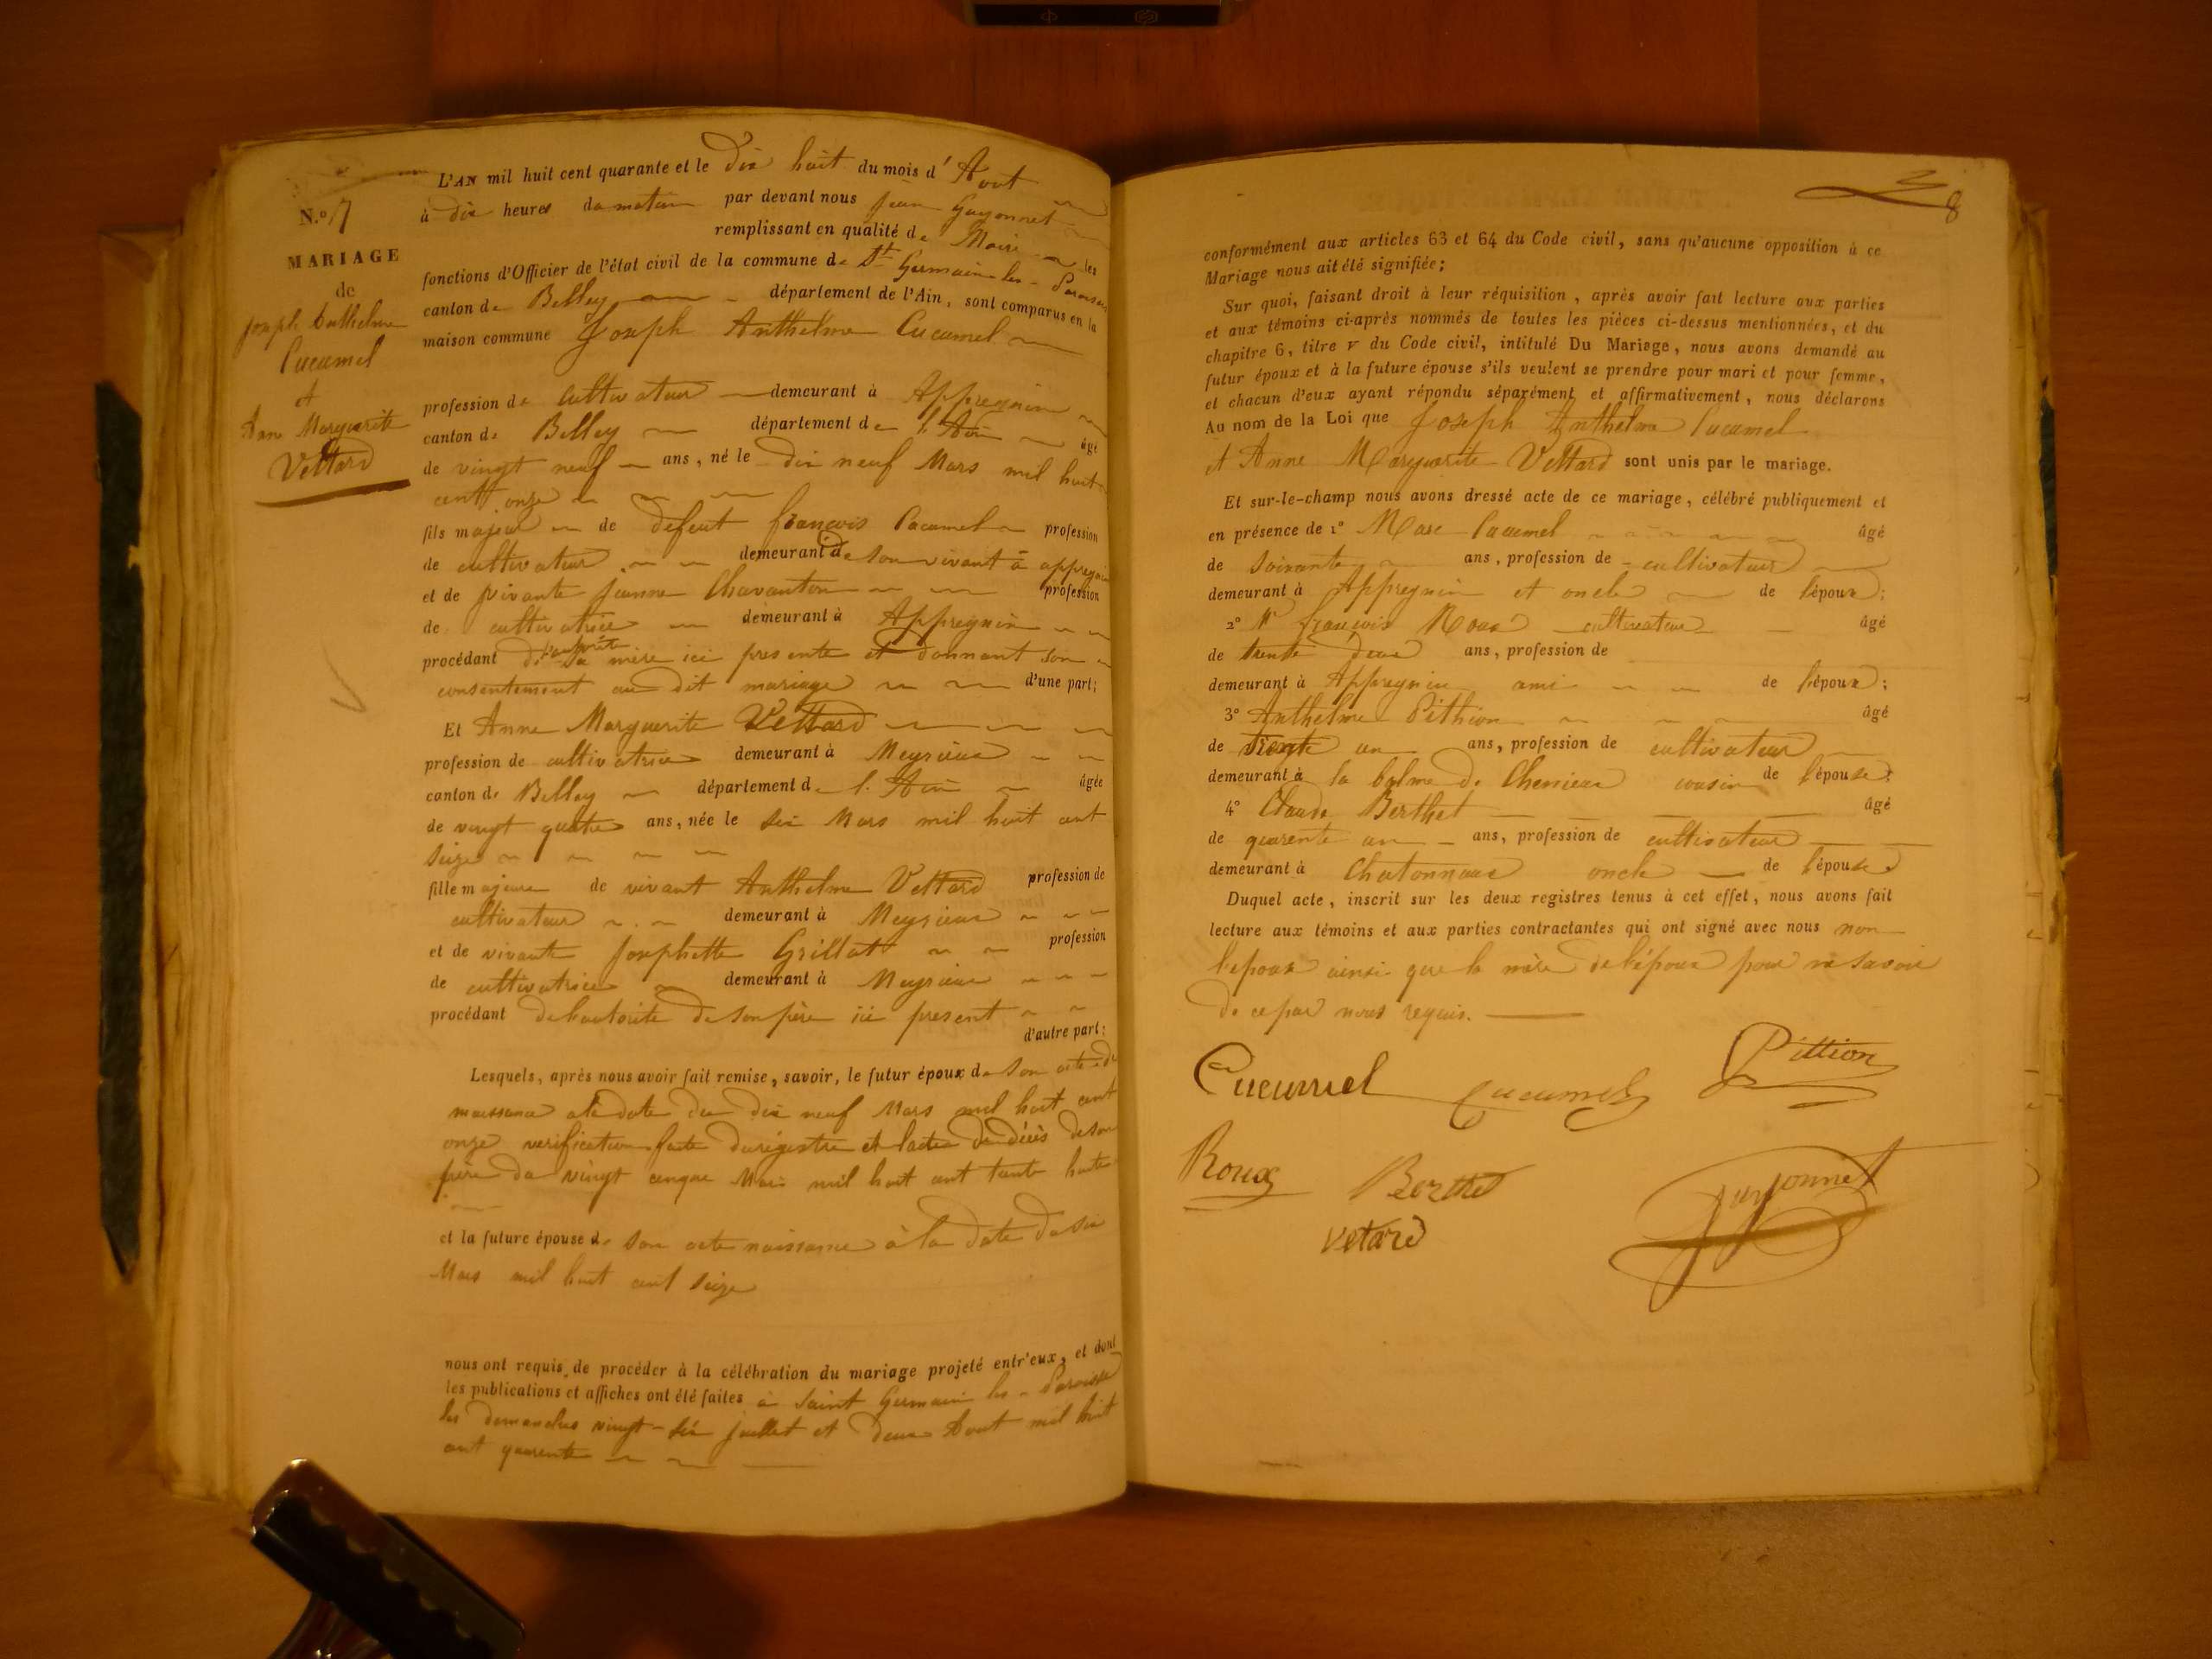 N.º 7
MARIAGE
de
Joseph Anthelme
Cucumel
et
Anne Marguerite
Vettard
L'AN mil huit cent quarante et le dix huit du mois d'Aout
à dix heures du matin par devant nous Jean Guyonnet
remplissant en qualité de Maire les
fonctions d'Officier de l'état civil de la commune de St Germain les Paroisses
canton de Belley département de l'Ain, sont comparus en la
maison commune Joseph Anthelme Cucumel
profession de cultivateur demeurant à Appregnin
canton de Belley département de l'Ain âgé
de vingt neuf ans, né le dix neuf Mars mil huit
cent onze
fils majeur de defunt françois Cucumel profession
de cultivateur demeurant de son vivant à appregnin
et de vivante Jeanne Chavanton profession
de cultivatrice demeurant à Appregnin
procédant de l'autorité
sa mère ici presente et donnant son
consentement au dit mariage d'une part;
Et Anne Marguerite Vettard
profession de cultivatrice demeurant à Meyrieux
canton de Belley département de l'Ain âgée
de vingt quatre ans, née le six Mars mil huit cent
seize
fille majeure de vivant Anthelme Vettard profession de
cultivateur demeurant à Meyrieux
et de vivante Josephette Grillat profession
de cultivatrice demeurant à Meyrieux
procédant de l'autorité de son père ici present
d'autre part;
Lesquels, après nous avoir fait remise, savoir, le futur époux de son acte de
naissance à la date du dix neuf Mars mil huit cent
onze verification faite du régistre et l'acte de décès de son
père du vingt cinque Mai mil huit cent trente huit
et la future épouse de son acte naissance à la date du six
Mars mil huit cent seize
nous ont requis de procéder à la célébration du mariage projeté entr'eux, et dont
les publications et affiches ont été faites à Saint Germain les Paroisse
les demanches vingt-six juillet et deux Aout mil huit
cent quarente
8
conformément aux articles 63 et 64 du Code civil, sans qu'aucune opposition à ce
Mariage nous ait été signifiée;
Sur quoi, faisant droit à leur réquisition, après avoir fait lecture aux parties
et aux témoins ci-après nommés de toutes les pièces ci-dessus mentionnées, et du
chapitre 6, titre v du Code civil, intitulé Du Mariage, nous avons demandé au
futur époux et à la future épouse s'ils veulent se prendre pour mari et pour femme,
et chacun d'eux ayant répondu séparément et affirmativement, nous déclarons
Au nom de la Loi que Joseph Anthelme Cucumel
et Anne Marguerite Vettard sont unis par le mariage.
Et sur-le-champ nous avons dressé acte de ce mariage, célébré publiquement et
en présence de 1º Marc Cucumel âgé
de soixante ans, profession de cultivateur
demeurant à Appregnin et oncle de l'époux;
2º françois Roux cultivateur âgé
de trente deux ans, profession de
demeurant à Appregnin ami de l'époux;
3º Anthelme Pithion âgé
de trente un ans, profession de cultivateur
demeurant à la balme de Cherieux cousin de l'épouse;
4º Claude Berthet âgé
de quarente un ans, profession de cultivateur
demeurant à Chatonnaux oncle de l'épouse
Duquel acte, inscrit sur les deux registres tenus à cet effet, nous avons fait
lecture aux témoins et aux parties contractantes qui ont signé avec nous non
l'epoux ainsi que la mère de l'époux pour ne savoir
de ce par nous requis.
Cucumel Cucumel Pittion
Roux Berthet
Guyonnet
Vetard